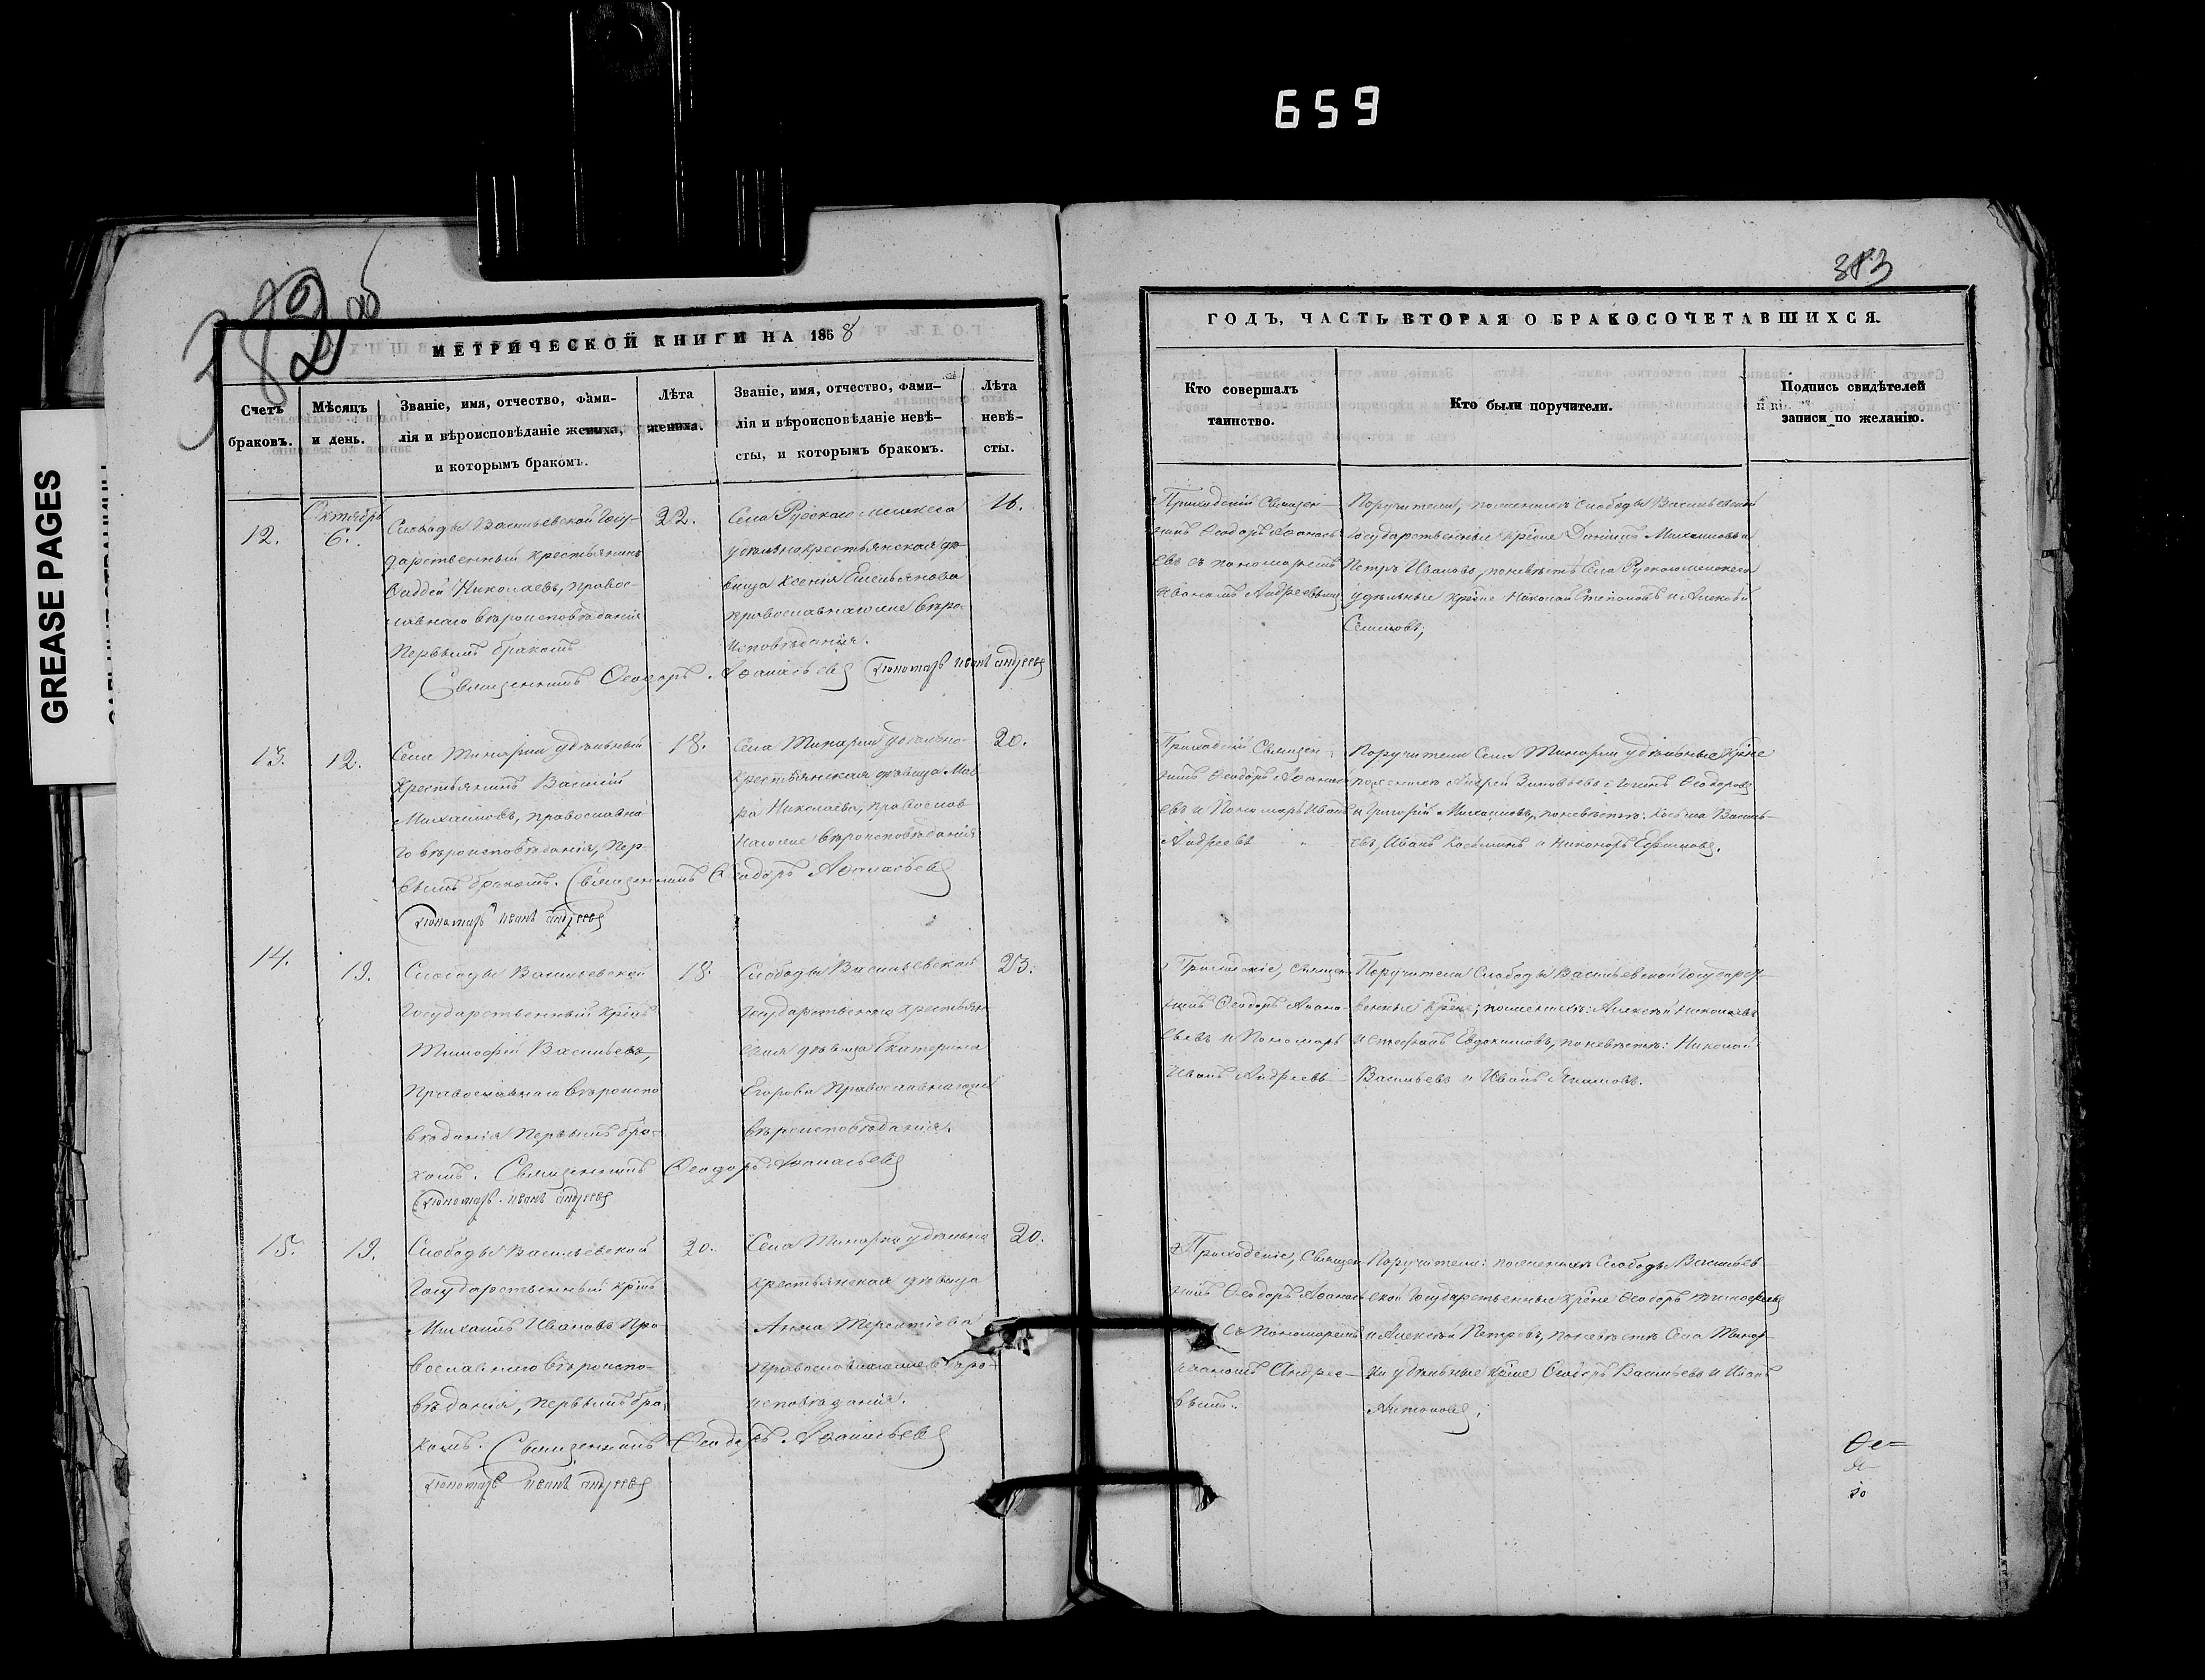 659
GREASE PAGES
382 об
МЕТРИЧЕСКОЙ КНИГИ НА 1868
Счетъ браковъ.
Мѣсяцъ и день.
Званіе, имя, отчество, фами-
лія и вѣроисповѣданіе жениха,
и которымъ бракомъ.
Лѣта жениха.
Званіе, имя, отчество, фами-
лія и вѣроисповѣданіе невѣ-
сты, и которымъ бракомъ.
Лѣта невѣ-
сты.
12.
Октябрь
6.
Слободы Васильевской Госу-
дарственный крестьянинъ
Фаддей Николаевъ, правос-
лавнаго вѣроисповѣданія
первымъ бракомъ
22.
Села Рускаго мелекеса
удѣльнокрестьянская дѣ-
вица Ксенія Емельянова
православнаго вѣро-
исповѣданія.
16.
Священникъ Ѳеодоръ Аѳанасьевъ Пономарь Иванъ Андреевъ
13.
12.
Села удѣльный
крестьянинъ Василій
Михайловъ, православна-
го вѣроисповѣданія, пер-
вымъ бракомъ. Священникъ Ѳеодоръ Аѳанасьевъ
Пономарь Иванъ Андреевъ
18.
Села удѣльно-
крестьянская дѣвица Мав
ра Николаева, православ
вѣроисповѣданія
20.
14.
19.
Слободы Васильевской
Государственный
Тимофей Васильевъ,
Православнаго вѣроиспо
вѣданія первымъ бра-
комъ. Священникъ Ѳеодоръ Аѳанасьевъ
Пономарь Иванъ Андреевъ
18.
Слободы Васильевской
Государственно крестьян
ская дѣвица Екатерина
Егорова
вѣроисповѣданія.
23.
15.
19.
Слободы Васильевской
Государственный
Михаилъ Ивановъ пра-
вославнаго вѣроиспо-
вѣданія, первымъ бра-
комъ. Священникъ Ѳеодоръ Аѳанасьевъ
Пономарь Иванъ Андреевъ
20.
Села удѣльно
крестьянская дѣвица
Анна Терентіева
вѣро-
исповѣданія.
20.
383
ГОДЪ, ЧАСТЬ ВТОРАЯ О БРАКОСОЧЕТАВШИХСЯ.
Кто совершалъ
таинство.
Кто были поручители.
Подпись свидѣтелей
записи по желанію.
Приходскій Священ-
никъ Ѳеодоръ Аѳанась-
евъ съ пономаремъ
Иваномъ Андреевымъ
Поручители, по женихѣ Слободы Васильевской
Государственные Михайловъ и
Петръ Ивановъ, по невѣстѣ Села Рускаго мелекеса
удѣльные Николай Степановъ и Алексѣй
Семеновъ;
Приходскій Священ-
никъ Ѳеодоръ Аѳанась
евъ и Пономарь Иванъ
Андреевъ
Поручители Села удѣльные
по женихѣ Андрей Зиновьевъ, Ѳеодоровъ
и Григорій Михайловъ, по невѣстѣ: Косьма Василь-
евъ, Иванъ Косьминъ и Никоноръ Ефимовъ.
Священ-
никъ Ѳеодоръ Аѳана-
сьевъ и Пономарь
Иванъ Андреевъ
Поручители Слободы Васильевской Государст-
венные по женихѣ: Алексѣй Николаевъ
и Стефанъ Евдокимовъ, по невѣстѣ: Николай
Васильевъ и Иванъ
Священ-
никъ Ѳеодоръ Аѳанась
съ Пономаремъ
Иваномъ Андрее-
вымъ.
Поручители: по женихѣ Слободы Васильев-
ской Государственные Ѳеодоръ Тимофеевъ
и Алексѣй Петровъ, по невѣстѣ Села
удѣльные Ѳеодоръ Васильевъ и Иванъ
Антоновъ;